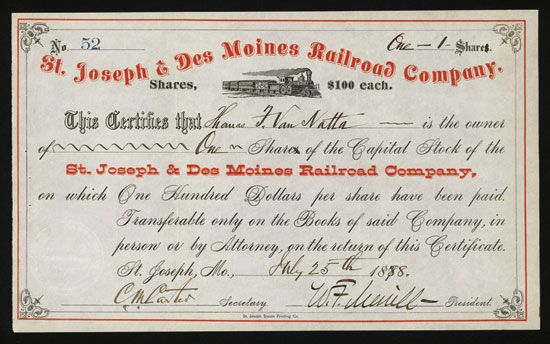 No. 52 One - 1 - Shares.
St. Joseph & Des Moines Railroad Company.
Shares, $100 each.
This Certifies that Thomas F. Van Natta is the owner
of One Shares of the Capital Stock of the
St. Joseph & Des Moines Railroad Company,
on which One Hundred Dollars per share have been paid.
Transferable only on the Books of said Company, in
person or by Attorney, on the return of this Certificate.
St. Joseph, Mo., July 25th 1888.
C. M. Carter Secretary. W. F. Merrill President.
St. Joseph Steam Printing Co.